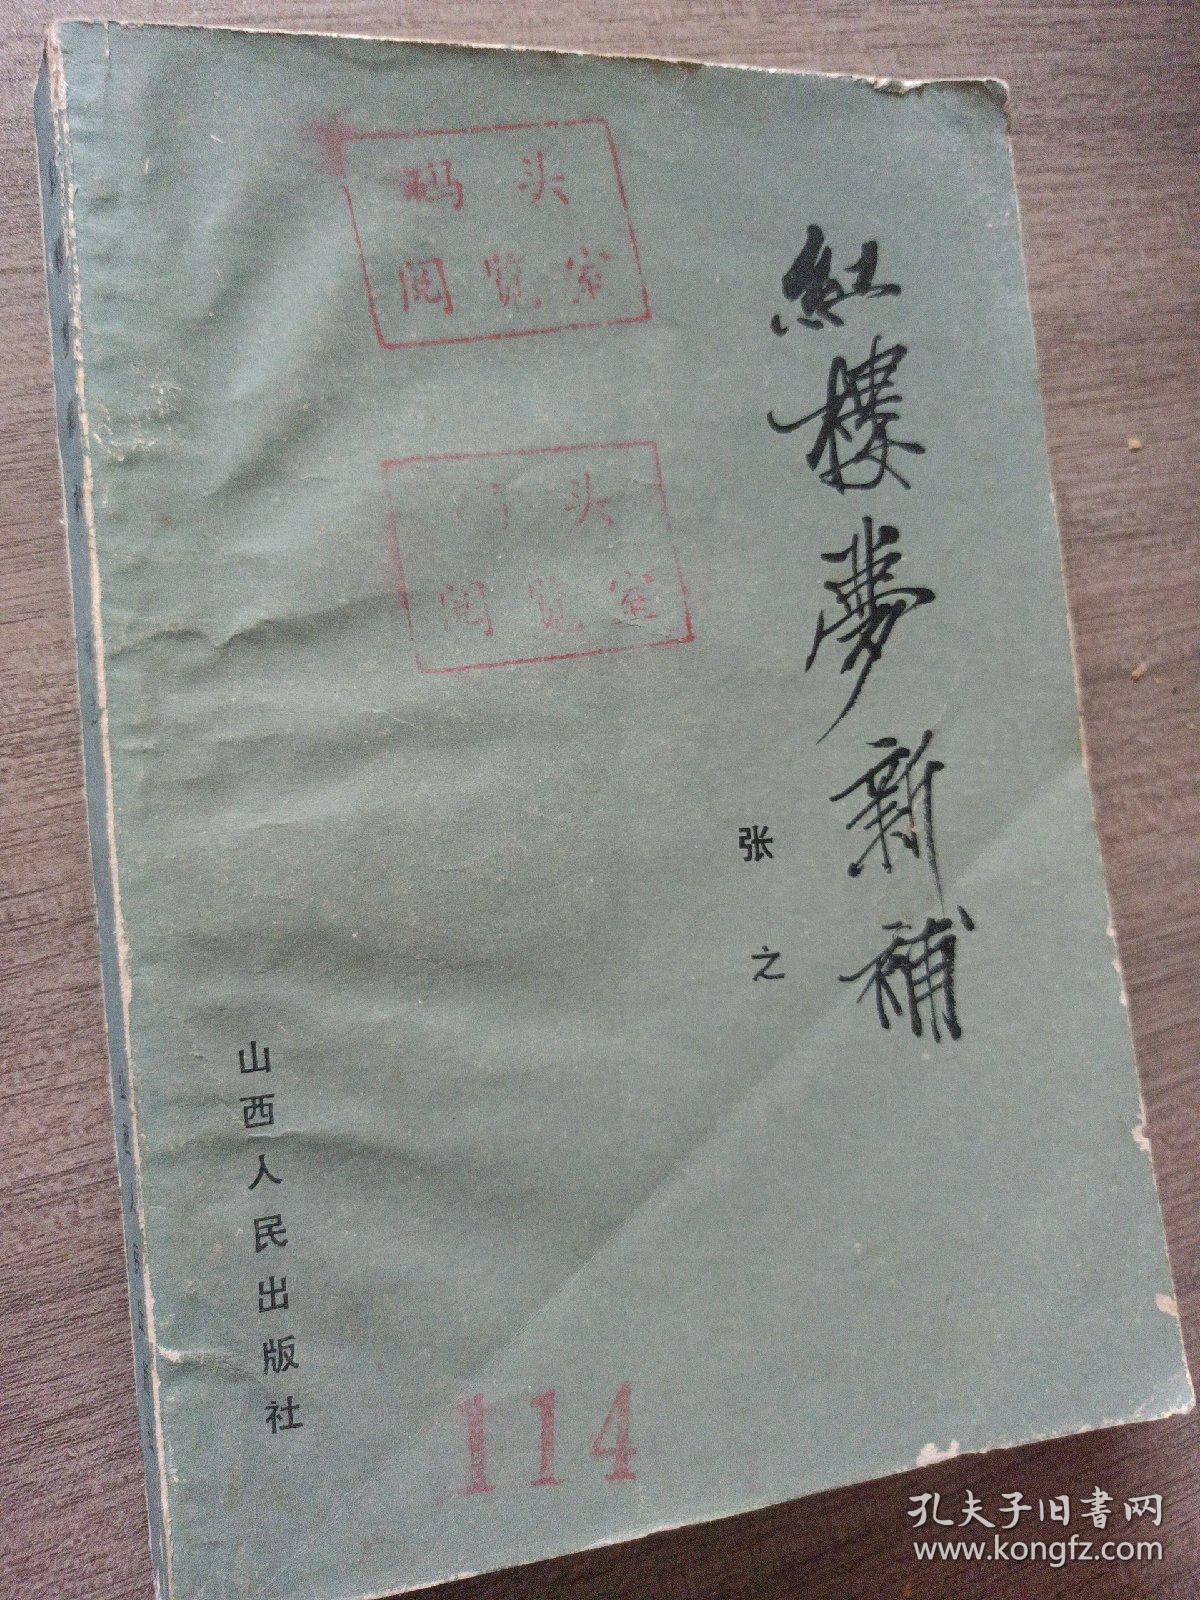 紅樓夢新補
张之
山西人民出版社
码头
阅览室
头
阅览室
114
孔夫子旧書网
www.kongfz.com